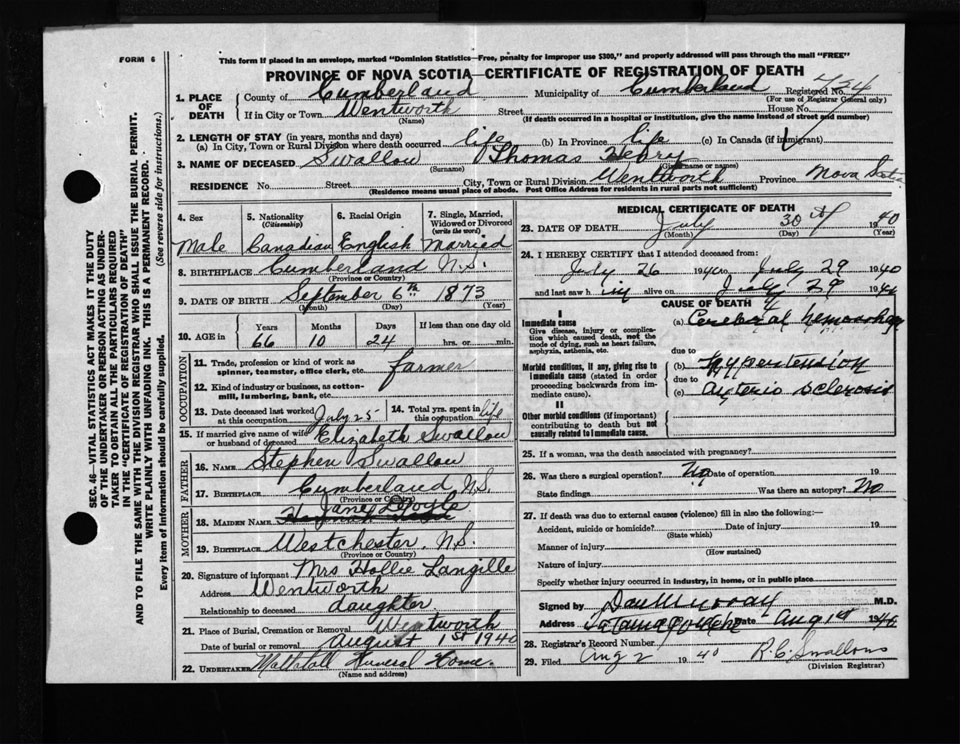 FORM 6
This form if placed in an envelope, marked "Dominion Statistics—Free, penalty for improper use $300," and properly addressed will pass through the mail "FREE"
PROVINCE OF NOVA SCOTIA—CERTIFICATE OF REGISTRATION OF DEATH
1. PLACE OF DEATH County of Cumberland Municipality of Cumberland Registered No. 454
(For use of Registrar General only)
If in City or Town Wentworth Street House No.
(Name) (If death occurred in a hospital or institution, give the name instead of street and number)
2. LENGTH OF STAY (in years, months and days)
(a) In City, Town or Rural Division where death occurred life (b) In Province life (c) In Canada (if immigrant)
3. NAME OF DECEASED Swallow Thomas Henry
(Surname) (Given name or names)
RESIDENCE No. Street City, Town or Rural Division Wentworth Province Nova Scotia
(Residence means usual place of abode. Post Office Address for residents in rural parts not sufficient)
4. Sex 5. Nationality (Citizenship) 6. Racial Origin 7. Single, Married, Widowed or Divorced (write the word)
Male Canadian English Married
8. BIRTHPLACE Cumberland N.S.
(Province or Country)
9. DATE OF BIRTH September 6th 1873
(Month) (Day) (Year)
10. AGE in Years Months Days If less than one day old
66 10 24 hrs. or min.
OCCUPATION
11. Trade, profession or kind of work as spinner, teamster, office clerk, etc. farmer
12. Kind of industry or business, as cotton-mill, lumbering, bank, etc.
13. Date deceased last worked at this occupation July 25 14. Total yrs. spent in this occupation life
15. If married give name of wife or husband of deceased Elizabeth Swallow
FATHER
16. NAME Stephen Swallow
17. BIRTHPLACE Cumberland N.S.
(Province or Country)
MOTHER
18. MAIDEN NAME Jane
19. BIRTHPLACE Westchester, N.S.
(Province or Country)
20. Signature of informant Mrs Hollie Langille
Address Wentworth
Relationship to deceased daughter
21. Place of Burial, Cremation or Removal Wentworth
Date of burial or removal August 1st 1940
22. UNDERTAKER Mattatall Funeral Home.
(Name and address)
MEDICAL CERTIFICATE OF DEATH
23. DATE OF DEATH July 30th 1940
(Month) (Day) (Year)
24. I HEREBY CERTIFY that I attended deceased from:
July 26 1940 to July 29 1940
and last saw h im alive on July 29 1940
CAUSE OF DEATH
I
Immediate cause (a) Cerebral hemorrhage
Give disease, injury or complication which caused death, not the mode of dying, such as heart failure, asphyxia, asthenia, etc.
due to
Morbid conditions, if any, giving rise to immediate cause (stated in order proceeding backwards from immediate cause). (b) Hypertension
due to
(c) arterio sclerosis
II
Other morbid conditions (if important) contributing to death but not causally related to immediate cause.
25. If a woman, was the death associated with pregnancy?
26. Was there a surgical operation? No Date of operation 19
State findings Was there an autopsy? No
27. If death was due to external causes (violence) fill in also the following:—
Accident, suicide or homicide? Date of injury 19
(State which)
Manner of injury
(How sustained)
Nature of injury
Specify whether injury occurred in industry, in home, or in public place
Signed by Dan Murray M.D.
Address Tatamagouche Date Aug 1st 1940
28. Registrar's Record Number
29. Filed Aug 2 1940 R.C. Swallow
(Division Registrar)
SEC. 46—VITAL STATISTICS ACT MAKES IT THE DUTY
OF THE UNDERTAKER OR PERSON ACTING AS UNDER-
TAKER TO OBTAIN ALL THE PARTICULARS REQUIRED
IN THE "CERTIFICATE OF REGISTRATION OF DEATH"
AND TO FILE THE SAME WITH THE DIVISION REGISTRAR WHO SHALL ISSUE THE BURIAL PERMIT.
WRITE PLAINLY WITH UNFADING INK. THIS IS A PERMANENT RECORD.
Every item of information should be carefully supplied. (See reverse side for instructions.)